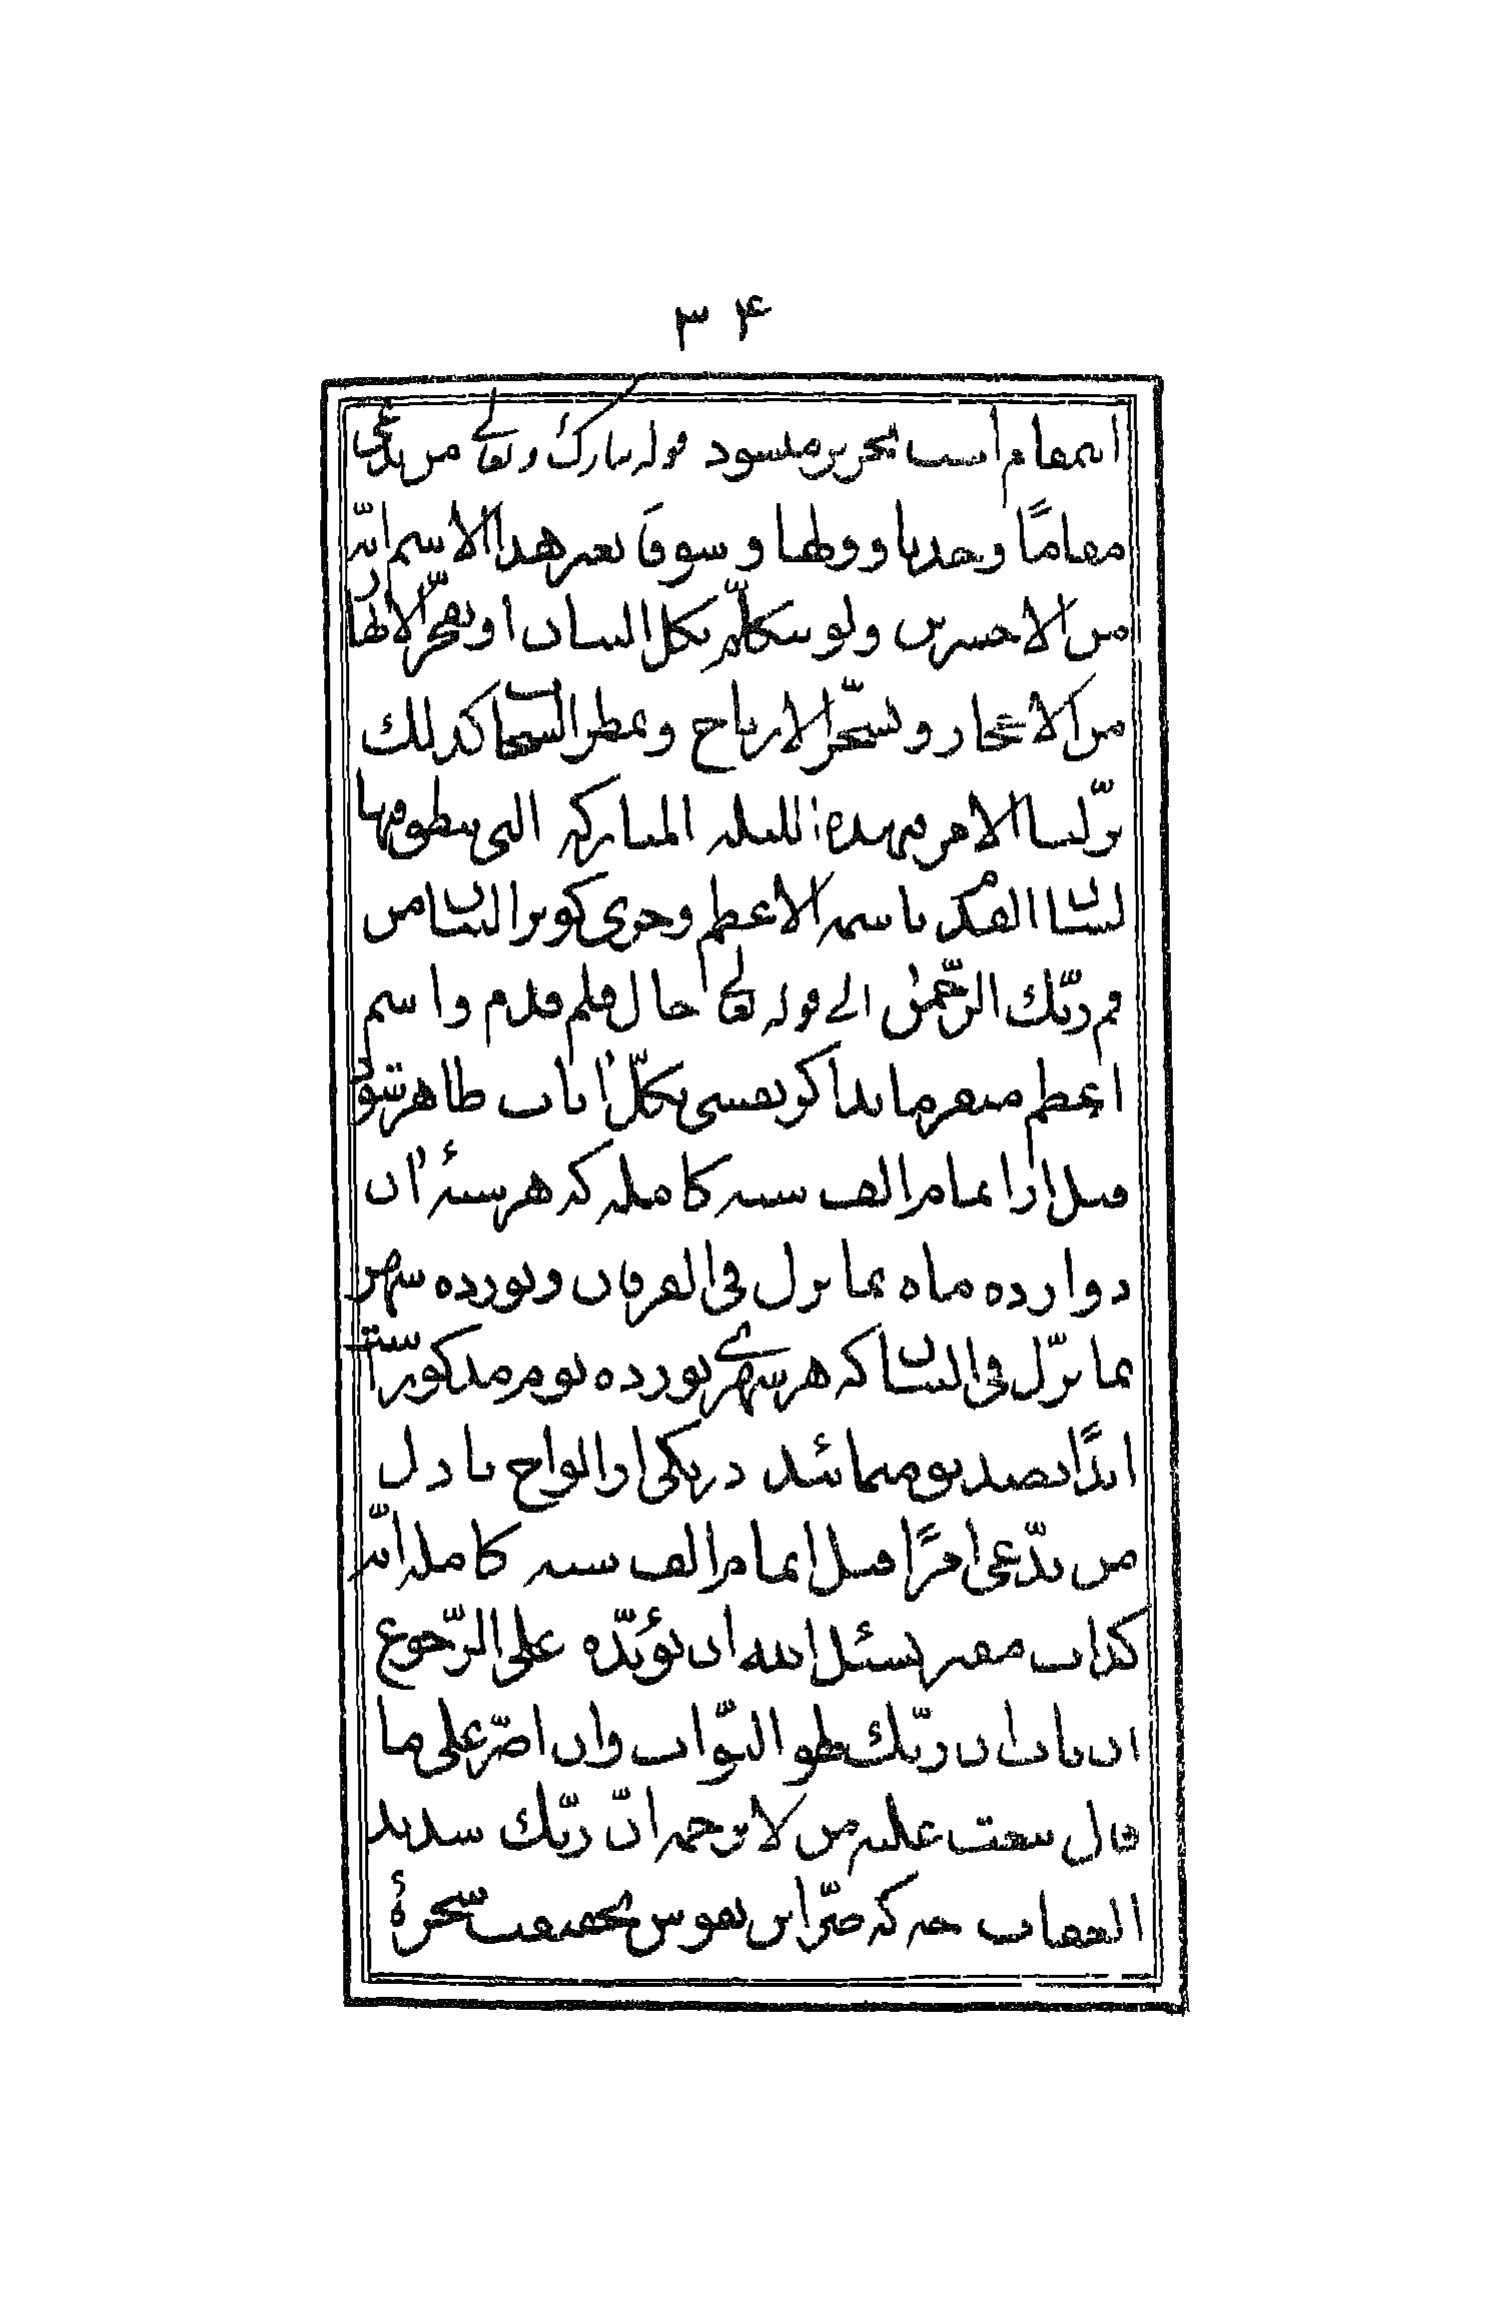 ۳۴
اینمقام است تحریر میشود قوله تبارک و تعالی من یدّعی
مقامًا و جذبا و ولها و شوقا بغیر هذا الاسم انّه
من الاخسرین ولو یتکلّم بکل البیان او یفجّر الانهار
من الاحجار و یسخّر الاریاح و یمطر السحاب کذلک
نزّلنا الامر فیهذه اللیله المبارکه التی ینطق فیها
لسان القدم باسمه الاعظم و جری کوثر البیان من
فم ربّک الرّحمن الی قوله تعالی حال قلم قدم و اسم
اعظم میفرماید اگر نفسی بکلّ آیات ظاهر شود
قبل از اتمام الف سنه کامله که هر سنهٔ آن
دوازده ماه بما نزل فی الفرقان و نوزده شهر
بما نزّل فی البیان که هر شهری نوزده یوم مذکور است
ابدًا تصدیق منمائید در یکی از الواح نازل
من یدّعی امرًا قبل اتمام الف سنه کامله انّه
کذاب مفتر نسئل الله ان یؤیّده علی الرّجوع
ان تاب ان ربّک لهو التوّاب وان اصرّ علی ما
قال یبعث علیه من لا یرحمه انّ ربّک شدید
العقاب چه که ضرّ این نفوس بحقیقت شجرهٔ